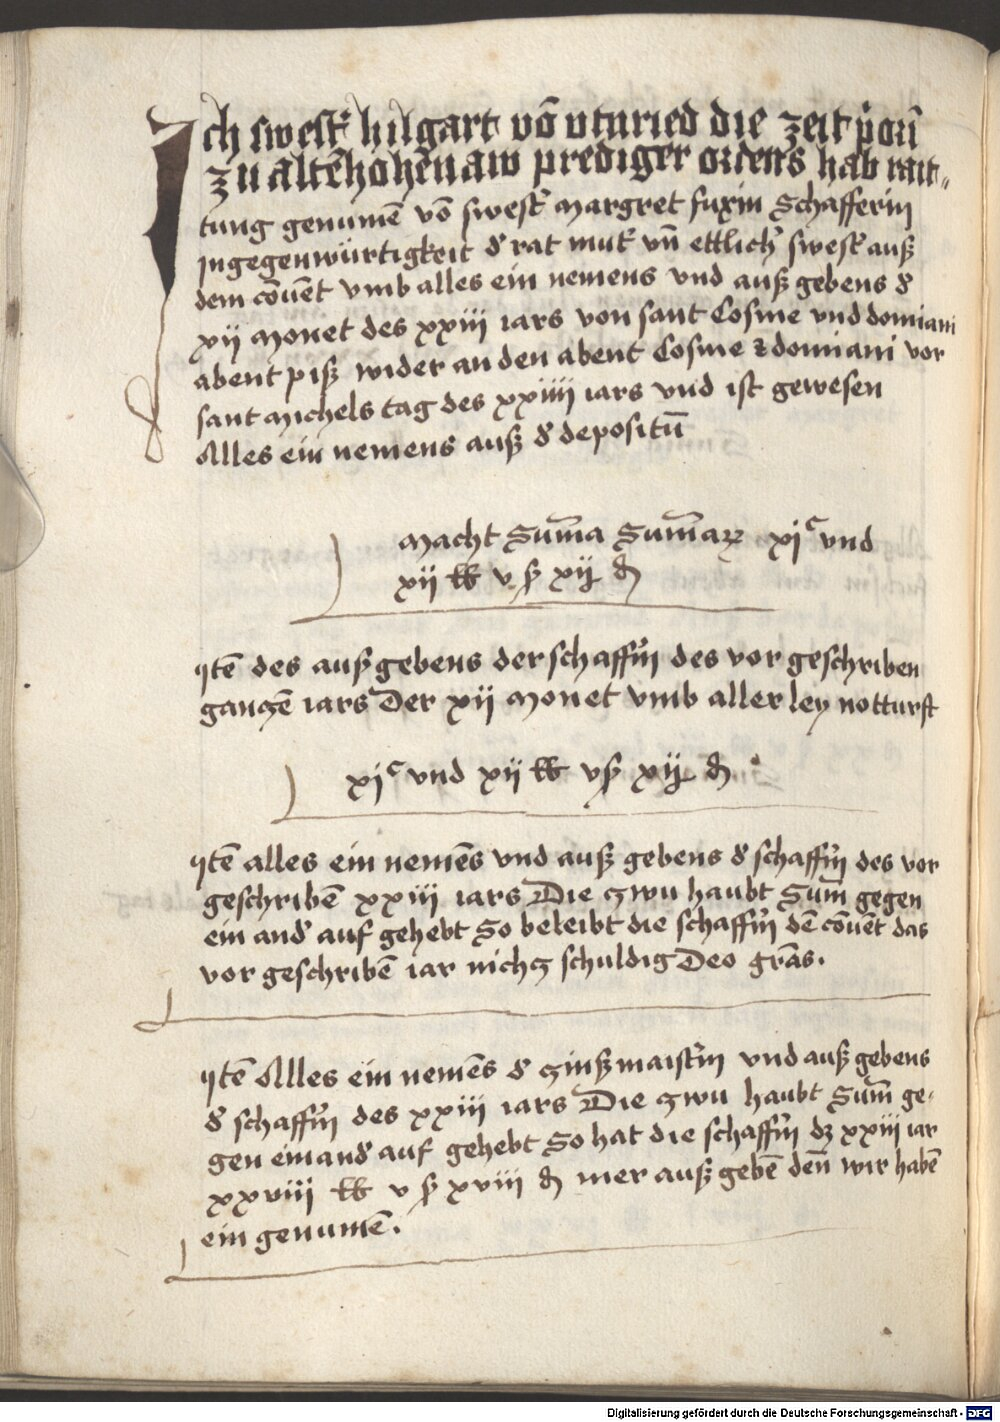 Ich swest' hilgart vō vturied die zeit p'orī
zu altēhohēnaw prediger ordens hab rait-
tung genumē vō swest' Margret fuxin Schafferin
jngegenwürtigkeit d' rat mut' vn̄ ettlich' swest' auß
dem cōuēt vmb alles ein nemens vnd auß gebens d'
xij Monet des xxiii iars von sant Cosme vnd domiani
abent piß wider an den abent Cosme & domiani vor
sant Michels tag des xxiiii iars vnd ist gewesen
Alles ein nemens auß d' depositū
Macht Sum̄a Sum̄aꝝ xjᶜ vnd
xij lb v ß xij d
Itē des auß gebens der schaff'in des vor geschriben
ganczē iars Der xij Monet vmb aller ley notturft
xjᶜ vnd xij lb v ß xij d
Itē alles ein nemēs vnd auß gebens d' schaff'in des vor
geschribē xxiii iars Die zwu haubt Sum̄ gegen
ein and' auf gehebt So beleibt die schaff'in dē cōuēt das
vor geschribē iar nichz schuldig Deo grās.
Itē Alles ein nemēs d' zinßmaist'in vnd auß gebens
d' schaff'in des xxiii iars Die zwu haubt Sum̄ ge-
gen einand' auf gehebt So hat die schaff'in dz xxiij iar
xxviii lb v ß xviii d mer auß gebē den̄ wir habē
ein genumē.
Digitalisierung gefördert durch die Deutsche Forschungsgemeinschaft - DFG